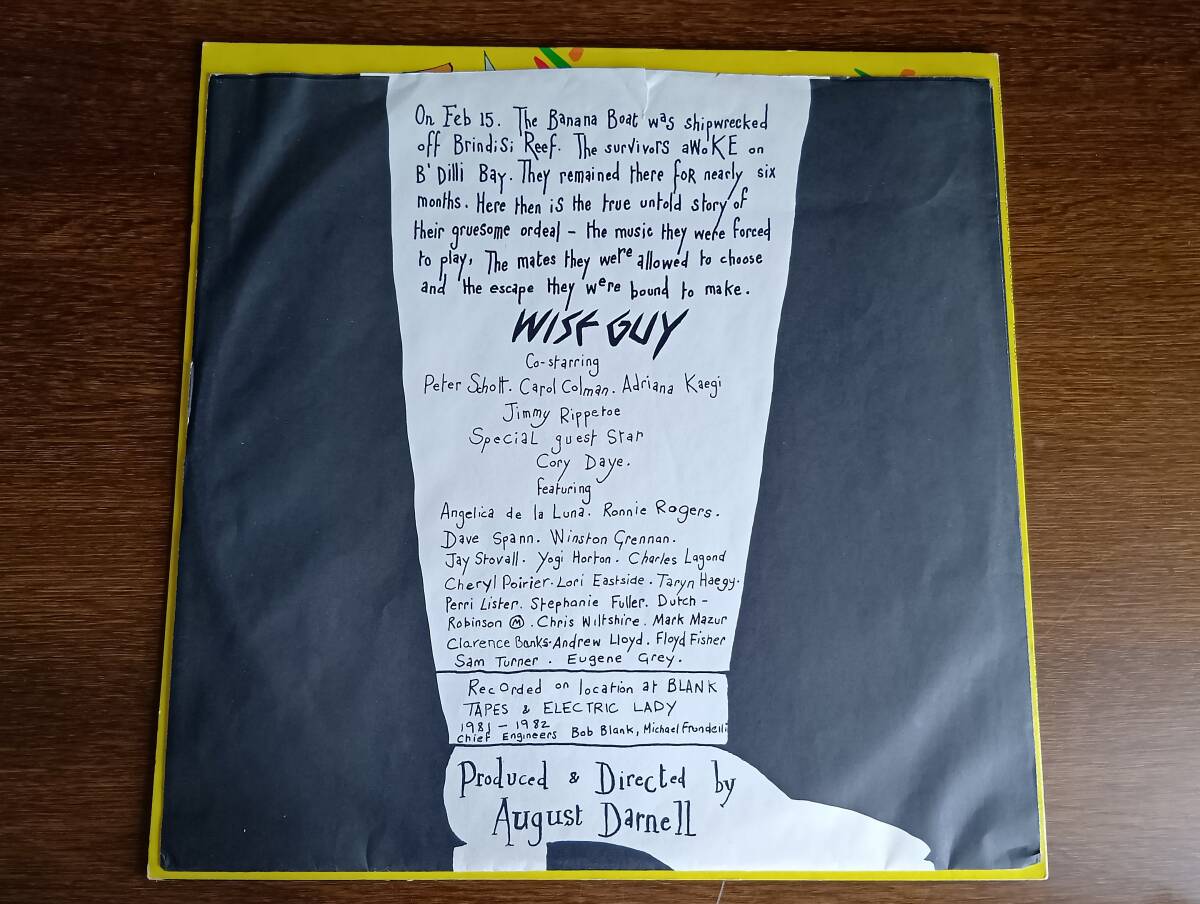 On Feb 15. The Banana Boat was shipwrecked
off Brindisi Reef. The survivors aWoKE on
B'Dilli Bay. They remained there foR nearly six
months. Here then is the true untold story of
their gruesome ordeal - the music they were forced
to play, The mates they were allowed to choose
and the escape they were bound to make.
WISE GUY
Co-starring
Peter Schott. Carol Colman. Adriana Kaegi
Jimmy Rippetoe
Special guest Star
Cory Daye.
featuring
Angelica de la Luna. Ronnie Rogers.
Dave Spann. Winston Grennan.
Jay Stovall. Yogi Horton. Charles Lagond
Cheryl Poirier. Lori Eastside. Taryn Haegy.
Perri Lister. Stephanie Fuller. Dutch -
Robinson Ⓜ. Chris Wiltshire. Mark Mazur
Clarence Banks. Andrew Lloyd. Floyd Fisher
Sam Turner. Eugene Grey.
Recorded on location at BLANK
TAPES & ELECTRIC LADY
1981 - 1982
Chief Engineers Bob Blank, Michael Frondelli
Produced & Directed by
August Darnell